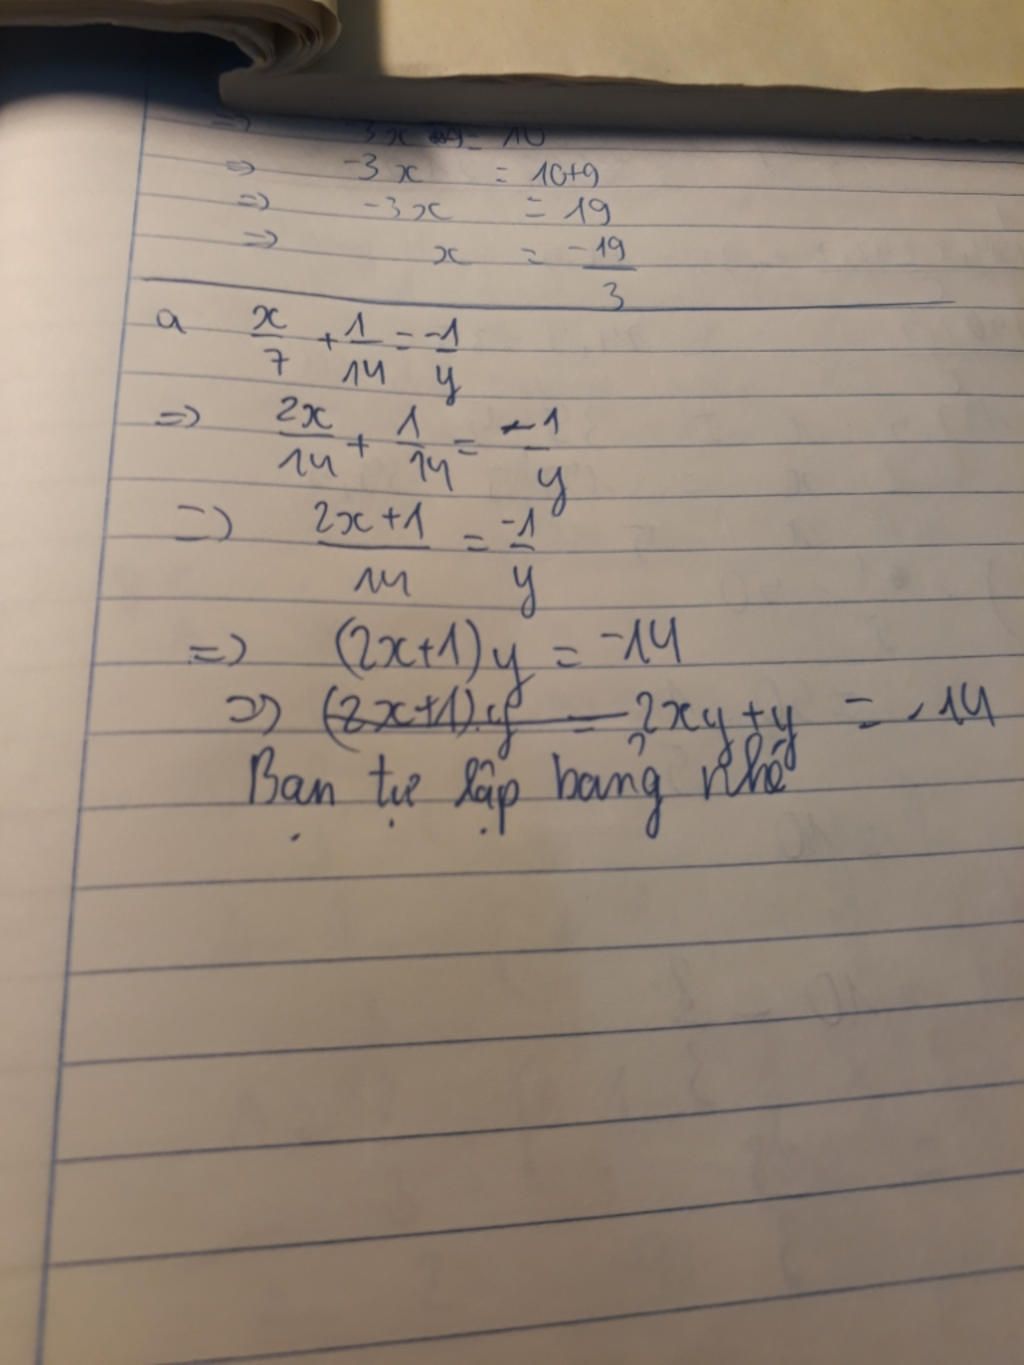 ⇒ -3x = 10
⇒ -3x = 10+9
⇒ -3x = 19
⇒ x = -19/3
a x/7 + 1/14 = -1/y
⇒ 2x/14 + 1/14 = -1/y
⇒ 2x+1/14 = -1/y
⇒ (2x+1)y = -14
⇒ 2xy+y = -14
Bạn tự lập bảng nhé